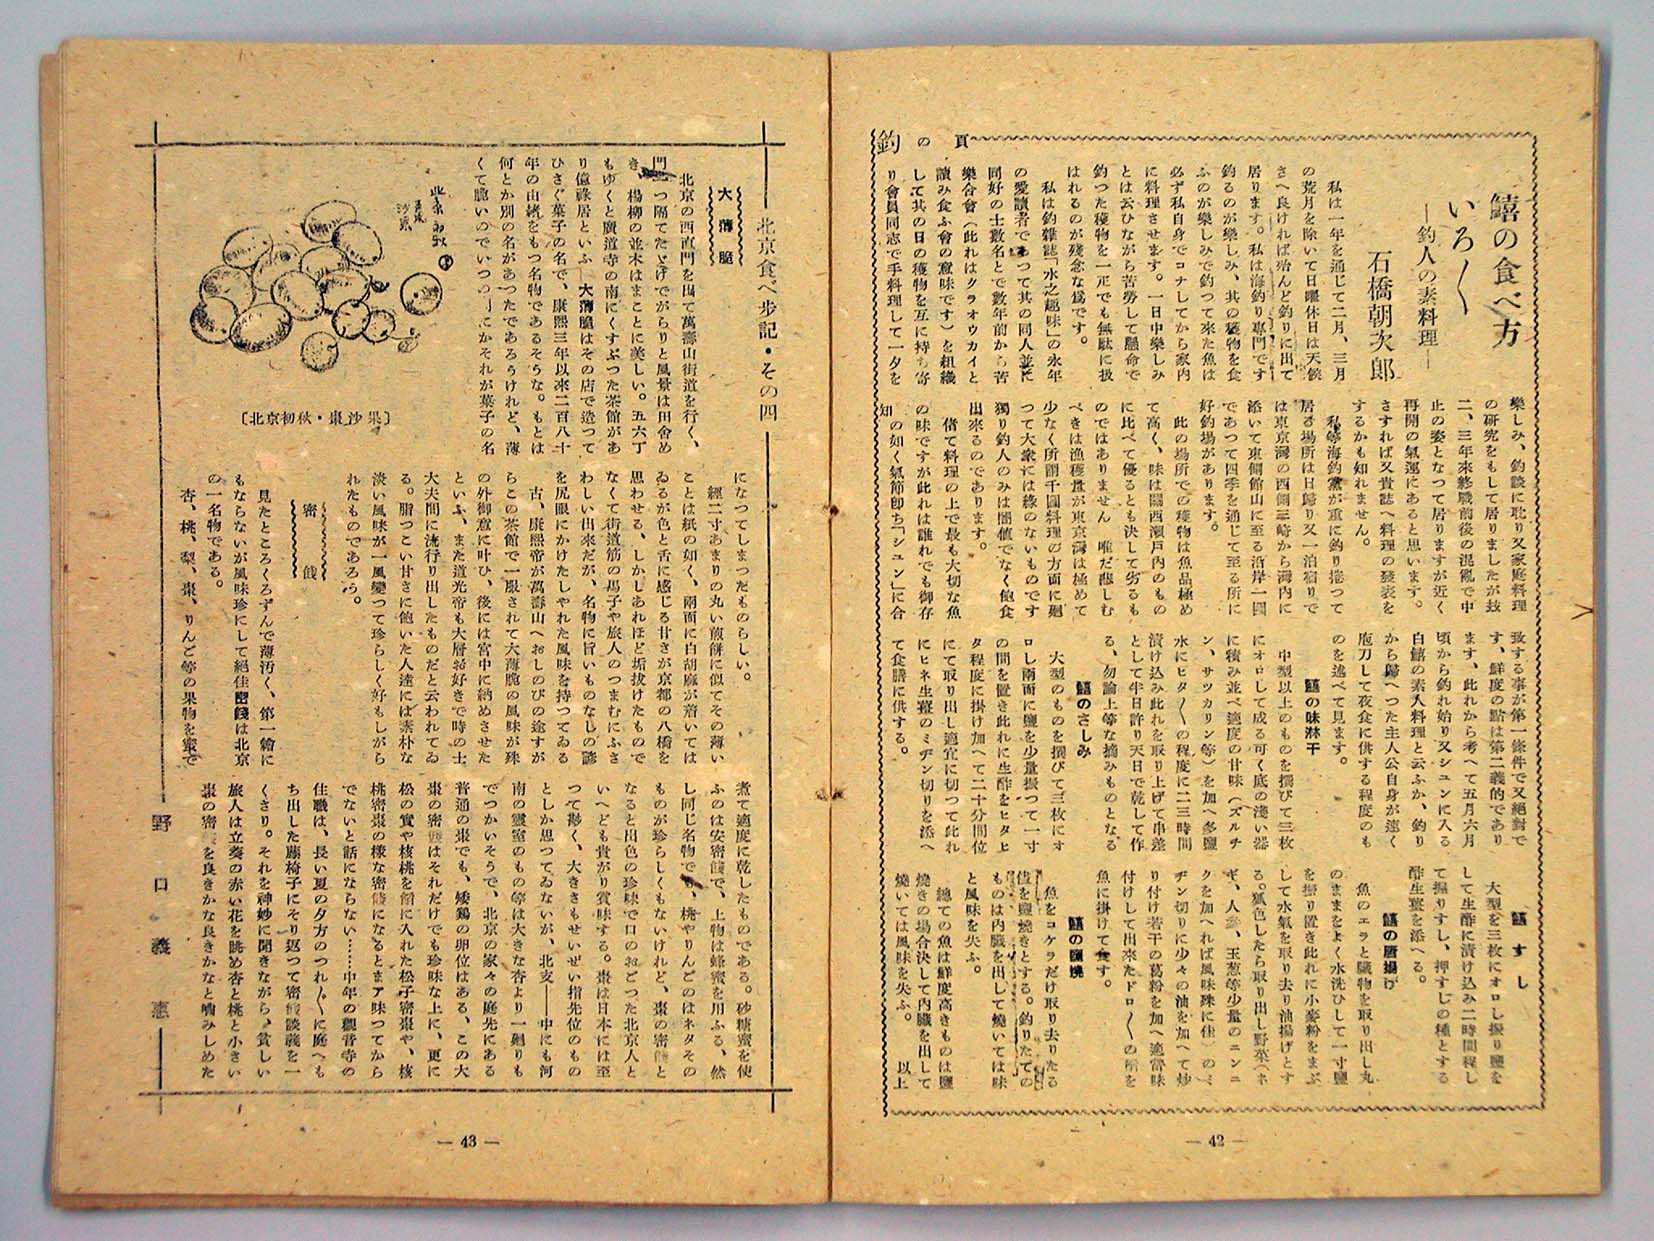 釣の頁
鱚の食べ方
いろ〱
―釣人の素料理―
石橋朝次郎
私は一年を通じて二月、三月
の荒月を除いて日曜休日は天候
さへ良ければ殆んど釣りに出て
居ります。私は海釣り専門です
釣るのが樂しみ、其の穫物を食
ふのが樂しみで釣つて來た魚は
必ず私自身でコナしてから家内
に料理させます。一日中樂しみ
とは云ひながら苦勞して懸命で
釣つた穫物を一疋でも無駄に扱
はれるのが殘念な爲です。
私は釣雜誌「水之趣味」の永年
の愛讀者であつて其の同人並に
同好の士數名とで數年前から苦
樂舎會（此れはクラオウカイと
讀み食ふ會の意味です）を組織
して其の日の穫物を互に持ち寄
り會員同志で手料理して一夕を
樂しみ、釣談に耽り又家庭料理
の研究をもして居りましたが技
二、三年來終戰前後の混亂で中
止の姿となつて居りますが近く
再開の氣運にあると思います。
さすれば又貴誌へ料理の發表を
するかも知れません。
私等海釣黨が重に釣り捲つて
居る場所は日歸り又一泊宿りで
は東京灣の西側三崎から灣内に
添いて東側館山に至る沿岸一圓
であつて四季を通じて至る所に
好釣場があります。
此の場所での穫物は魚品極め
て高く、味は關西瀬戸内のもの
に比べて優るとも決して劣るも
のではありません　唯だ悲しむ
べきは漁穫量が東京灣は極めて
少なく所謂千圓料理の方面に廻
つて大衆には縁のないものです
獨り釣人のみは闇値でなく飽食
出來るのであります。
偖て料理の上で最も大切な魚
の味ですが此れは誰れでも御存
知の如く氣節卽ち「シュン」に合
致する事が第一條件で又絕對で
す、鮮度の點は第二義的であり
ます、此れから考へて五月六月
頃から釣れ始り又シュンに入る
白鱚の素人料理と云ふか、釣り
から歸へつた主人公自身が速く
庖刀して夜食に供する程度のも
のを述べて見ます。
鱚の味淋干
中型以上のものを撰びて三枚
にオロして成る可く底の淺い器
に積み並べ適度の甘味（ズルチ
ン、サツカリン等）を加へ多鹽
水にヒタ〱の程度に二三時間
漬け込み此れを取り上げて串差
として半日許り天日で乾して作
る、勿論上等な摘みものとなる
鱚のさしみ
大型のものを撰びて三枚にオ
ロし兩面に鹽を少量振つて一寸
の間を置き此れに生酢をヒタヒ
タ程度に掛け加へて二十分間位
にて取り出し適宜に切つて此れ
にヒネ生薑のミヂン切りを添へ
て食膳に供する。
鱚すし
大型を三枚にオロし振り鹽を
して生酢に漬け込み二時間程し
て握りすし、押すしの種とする
酢生薑を添へる。
鱚の唐揚げ
魚のエラと臟物を取り出し丸
のままをよく水洗ひして一寸鹽
を振り置き此れに小麥粉をまぶ
して水氣を取り去り油揚げとす
る。狐色したら取り出し野菜（ネ
ギ、人參、玉葱等少量のニンニ
クを加へれば風味殊に佳）のミ
ヂン切りに少々の油を加へて炒
り付け若干の葛粉を加へ適當味
付けして出來たドロ〱の餡を
魚に掛けて食す。
鱚の鹽燒
魚をコケラだけ取り去りたる
儘を鹽燒きとする。釣りたての
ものは内臟を出して燒いては味
と風味を失ふ。
總ての魚は鮮度高きものは鹽
燒きの場合決して内臟を出して
燒いては風味を失ふ。　以上
― 42 ―
北京食べ歩記・その四
大薄脆
北京の西直門を出て萬壽山街道を行く、
門一つ隔てただけでがらりと風景は田舍め
き、楊柳の並木はまことに美しい。五六丁
もゆくと廣道寺の南にくすぶつた茶館があ
り億祿居といふ、大薄脆はその店で造つて
ひさぐ菓子の名で、康熙三年以來二百八十
年の由緒をもつ名物であるそうな。もとは
何とか別の名があつたであろうけれど、薄
くて脆いのでいつの間にかそれが菓子の名
北京初秋
沙菓
〔北京初秋・棗沙果〕
になつてしまつたものらしい。
經二寸あまりの丸い煎餅に似てその薄い
ことは紙の如く、兩面に白胡麻が着いては
ゐるが色と舌に感じる甘さが京都の八橋を
思わせる、しかしあれほど垢拔けたもので
なくて街道筋の馬子や旅人のつまむにふさ
わしい出來だが、名物に旨いものなしの諺
を尻眼にかけたしやれた風味を持つてゐる
古、康熙帝が萬壽山へおしのびの途すが
らこの茶館で一服されて大薄脆の風味が殊
の外御意に叶ひ、後には宮中に納めさせた
といふ、また道光帝も大層お好きで時の士
大夫間に流行り出したものだと云われてゐ
る。脂つこい甘さに飽いた人達には素朴な
淡い風味が一風變つて珍らしく好もしがら
れたものであろう。
密餞
見たところくろずんで薄汚く、第一繪に
もならないが風味珍にして絕佳密餞は北京
の一名物である。
杏、桃、梨、棗、りんご等の果物を蜜で
煮て適度に乾したものである。砂糖蜜を使
ふのは安密餞で、上物は蜂蜜を用ふる、然
し同じ名物でも、桃やりんごのはネタその
ものが珍らしくもないけれど、棗の密餞と
なると出色の珍味で口のおごつた北京人と
いへども貴がり賞味する。棗は日本には至
つて尠く、大きさもせいぜい指先位のもの
としか思つてゐないが、北支――中にも河
南の靈室のもの等は大きな杏より一廻りも
でつかいそうで、北京の家々の庭先にある
普通の棗でも、矮鷄の卵位はある、この大
棗の密餞はそれだけでも珍味な上に、更に
松の實や核桃を餡に入れた松子密棗や、核
桃密棗の樣な密餞になるとまア味つてから
でないと話にならない……中年の觀音寺の
住職は、長い夏の夕方のつれ〲に庭へも
ち出した藤椅子にそり返つて密餞談義を一
くさり。それを神妙に聞きながら、貧しい
旅人は立葵の赤い花を眺め杏と桃と小さい
棗の密餞を良きかな良きかなと嚙みしめた
野口義惠
― 43 ―